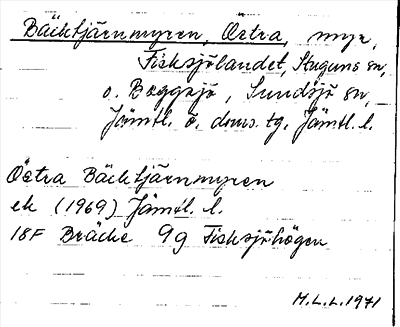 Bäcktjärnmyren, Östra, myr,
Fisksjölandet, Stuguns sn,
o. Boggsjö, Sundsjö sn,
Jämtl. ö. doms. tg. Jämtl. l.
Östra Bäcktjärnmyren
ek (1969) Jämtl. l.
18F Bräcke 9g Fisksjöhögen
M.L.L. 1971